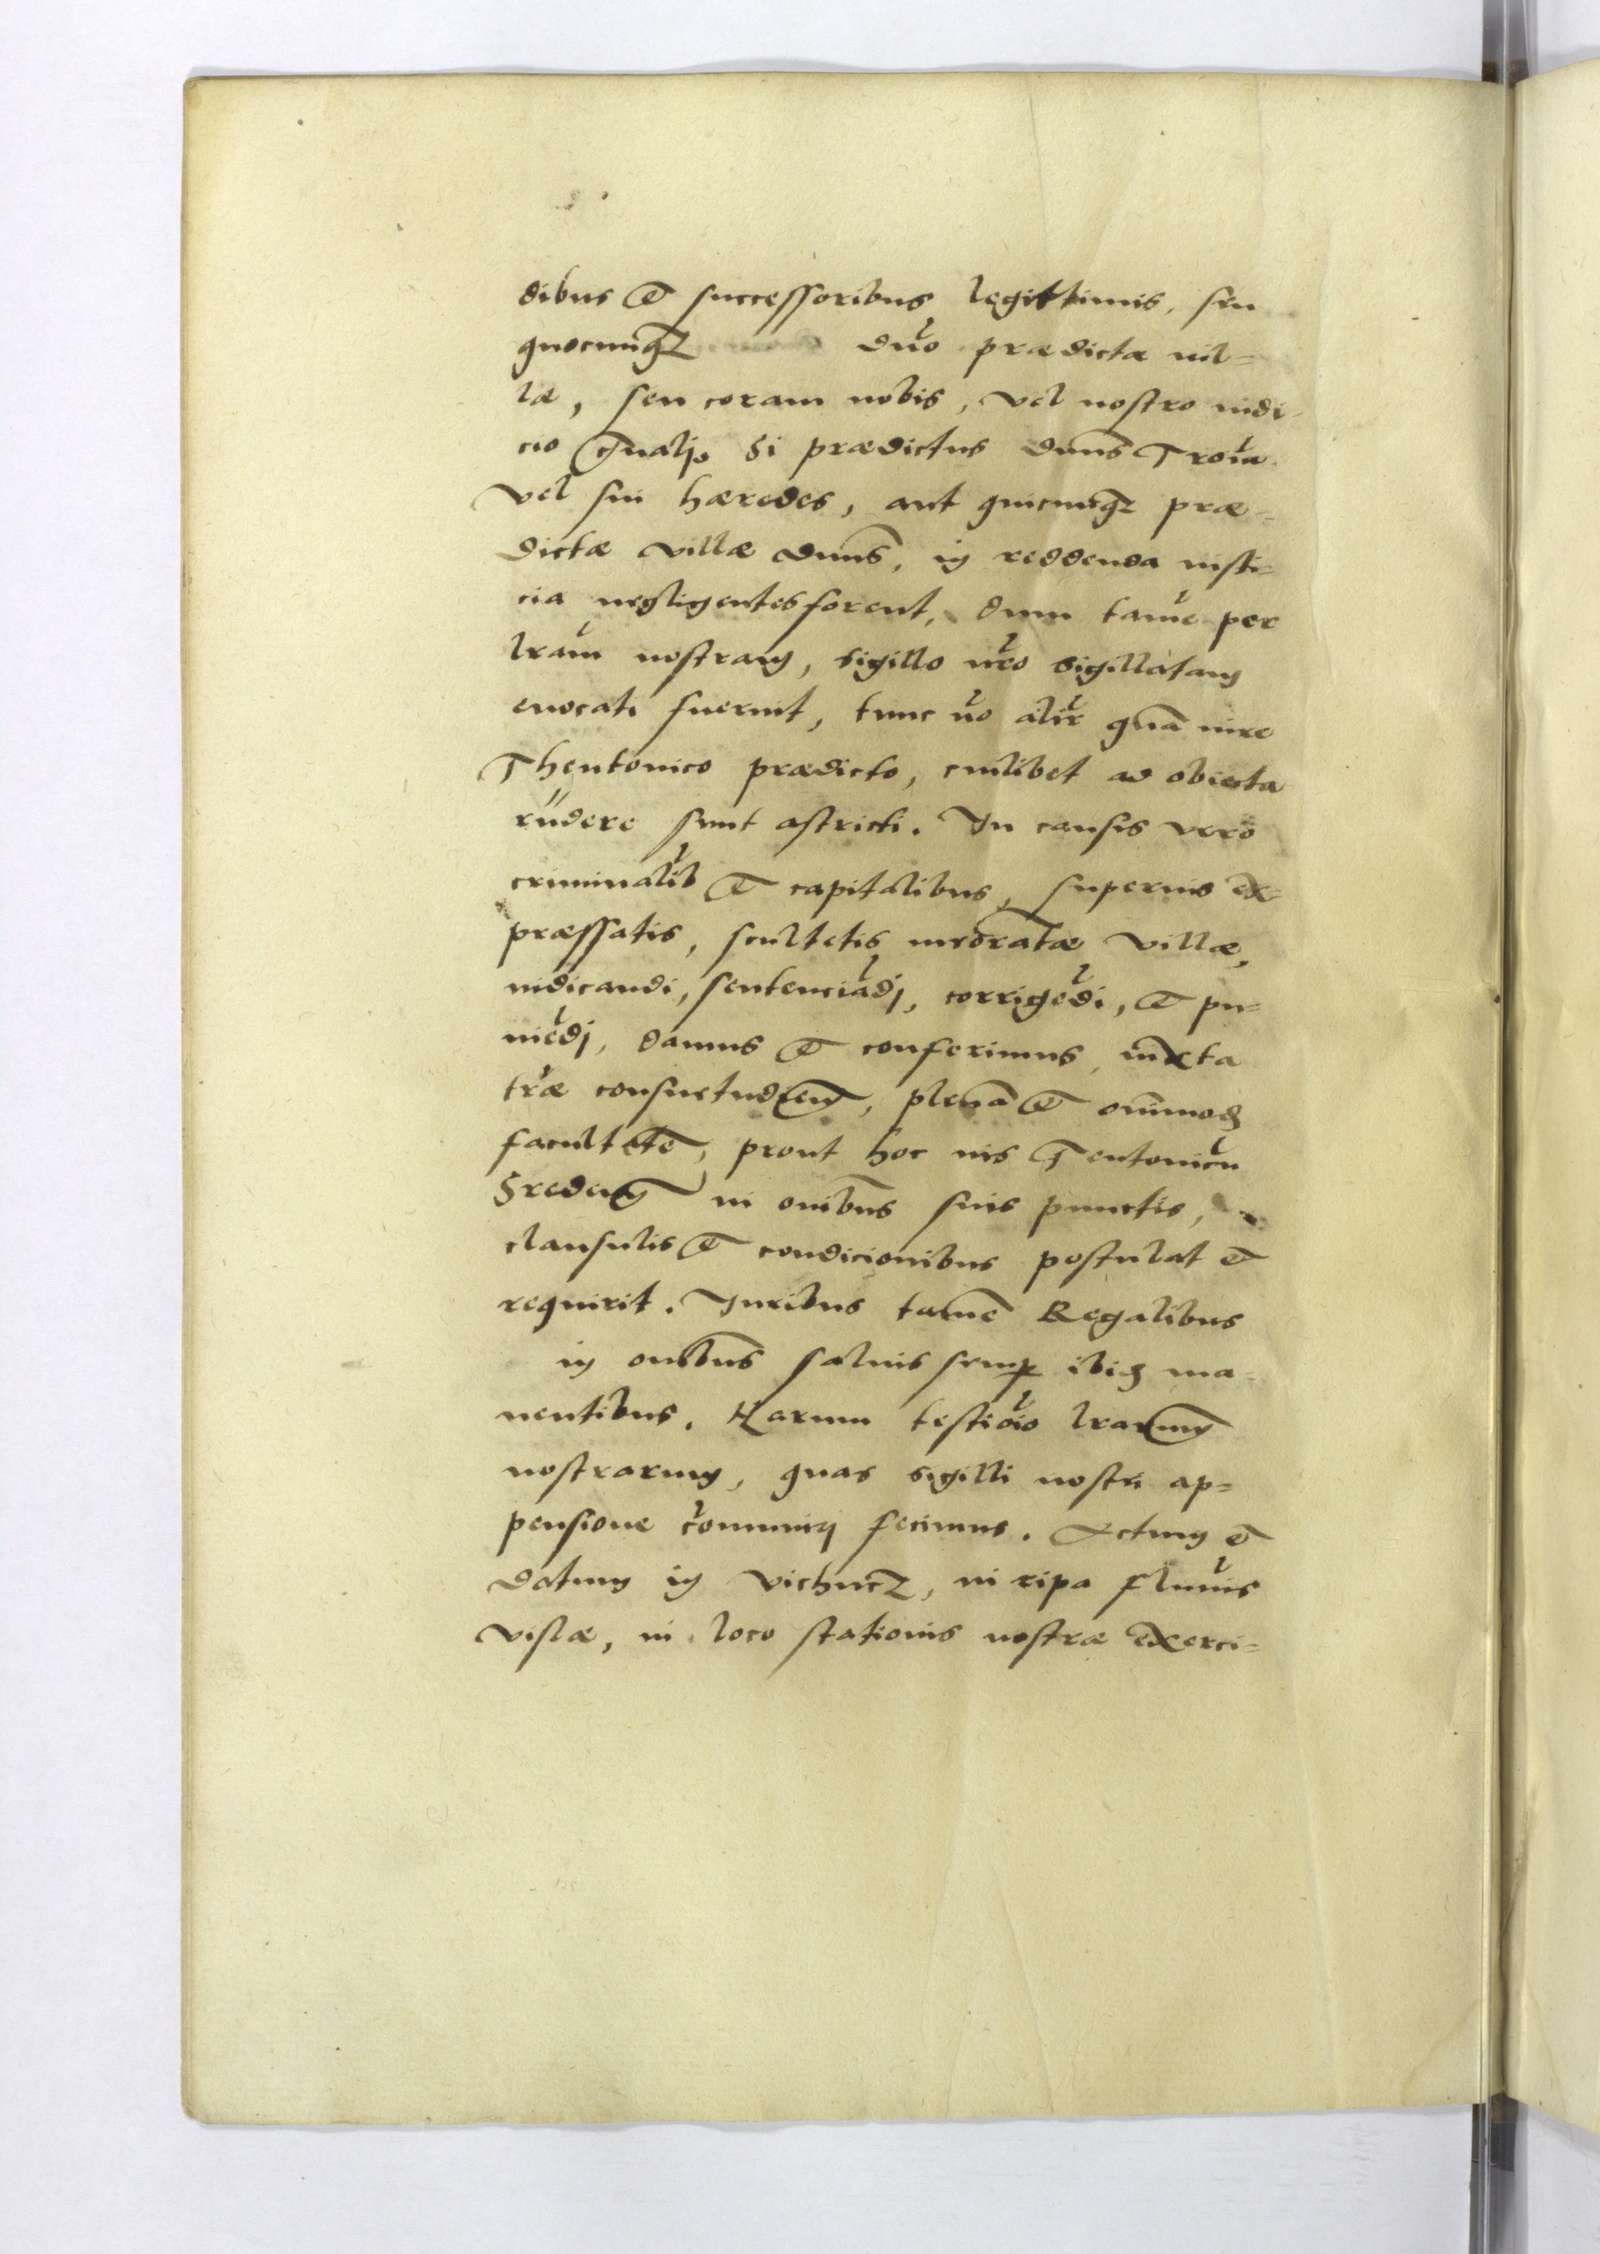 dibus et successoribus legittimis, seu
quocunq3 duo prædictæ vil=
læ, seu coram nobis, vel nostro iudi-
cio gnalj. Si prædictus dnns Troia
vel sui hæredes, aut quicunq3 præ=
dictæ villæ dnns, in reddenda iusti=
cia negligentes forent, dum tame per
lram nostram, sigillo nro sigillatam
euocati fuerint, tunc vo alir qua iure
Theutonico prædicto, cuilibet ad obiecta
rñdere sunt astricti. In causis vero
criminalib et capitalibus, superius ex=
præssatis, scultetis meoratæ villæ,
iudicandi, sentenciadj, corrigedi, et pu=
niedj, damus et conferimus, iuxta
træ consuetudiem, plena et omnimod
facultate, prout hoc ius Teutonicu
Sredens in oibus suis punctis,
clausulis et condicionibus postulat et
requirit. Iuribus tame Regalibus
in onibus saluis semp ibid ma-
nentibus. Harum testioio lrarum
nostrarum, quas sigilli nostri ap=
pensione comunirj fecimus. Actum et
datum in vichucz, in ripa fluuis
vislæ, in loco stationis nostræ exerci=